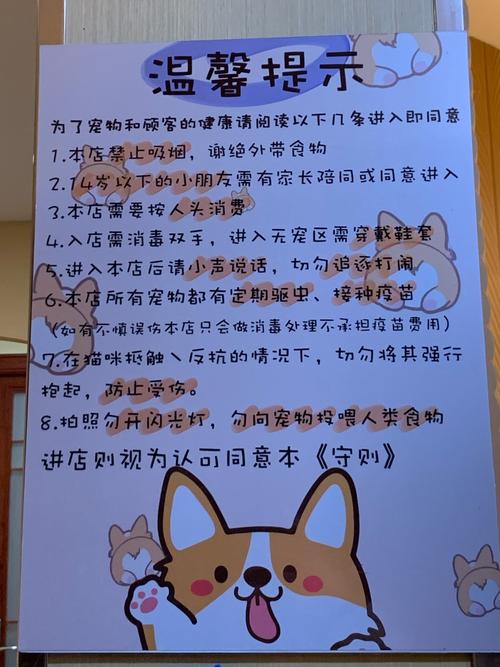 温馨提示
为了宠物和顾客的健康请阅读以下几条进入即同意
1.本店禁止吸烟，谢绝外带食物
2.14岁以下的小朋友需有家长陪同或同意进入
3.本店需要按人头消费
4.入店需消毒双手，进入无宠区需穿戴鞋套
5.进入本店后请小声说话，切勿追逐打闹
6.本店所有宠物都有定期驱虫、接种疫苗
（如有不慎误伤本店只会做消毒处理不承担疫苗费用）
7.在猫咪抵触、反抗的情况下，切勿将其强行
抱起，防止受伤。
8.拍照勿开闪光灯，勿向宠物投喂人类食物
进店则视为认可同意本《守则》